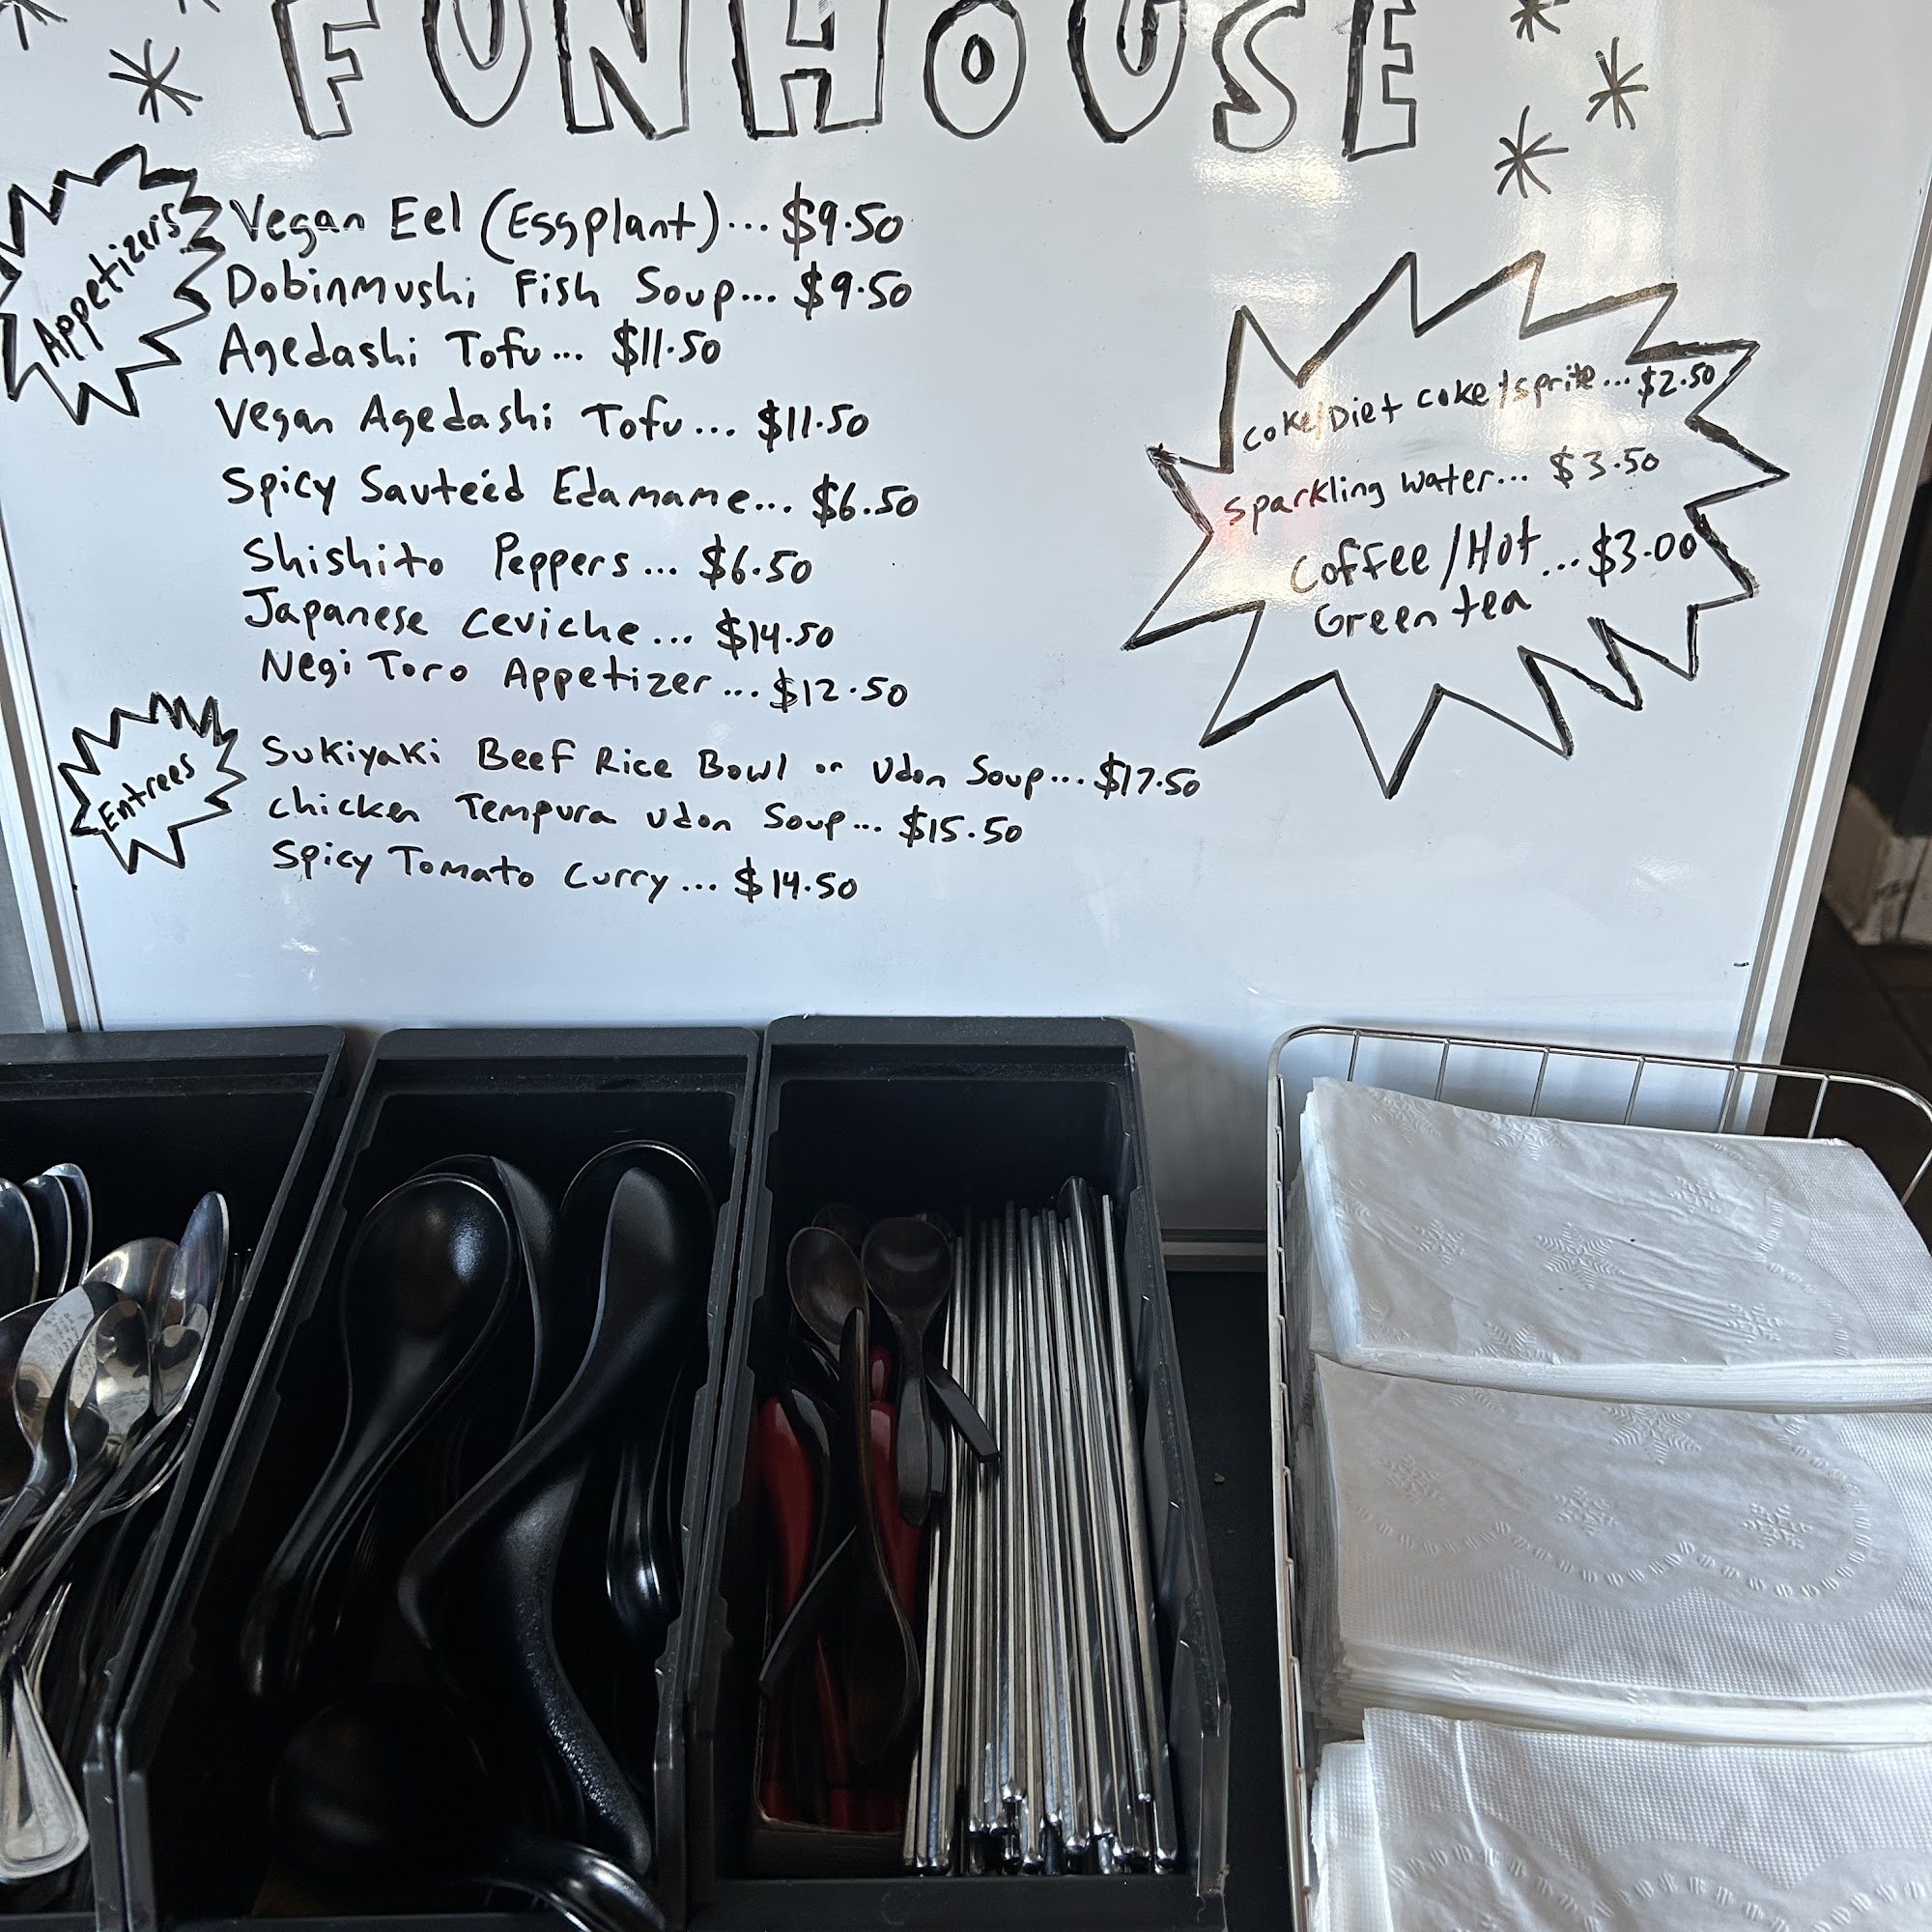 FUNHOUSE
Appetizers
Vegan Eel (Eggplant)... $9.50
Dobinmushi Fish Soup... $9.50
Agedashi Tofu... $11.50
Vegan Agedashi Tofu... $11.50
Spicy Sauteéd Edamame... $6.50
Shishito Peppers... $6.50
Japanese Ceviche... $14.50
Negi Toro Appetizer... $12.50
Entrees
Sukiyaki Beef Rice Bowl or Udon Soup... $17.50
Chicken Tempura Udon Soup... $15.50
Spicy Tomato Curry... $14.50
Coke/Diet coke/sprite... $2.50
Sparkling water... $3.50
Coffee/Hot... $3.00
Green tea